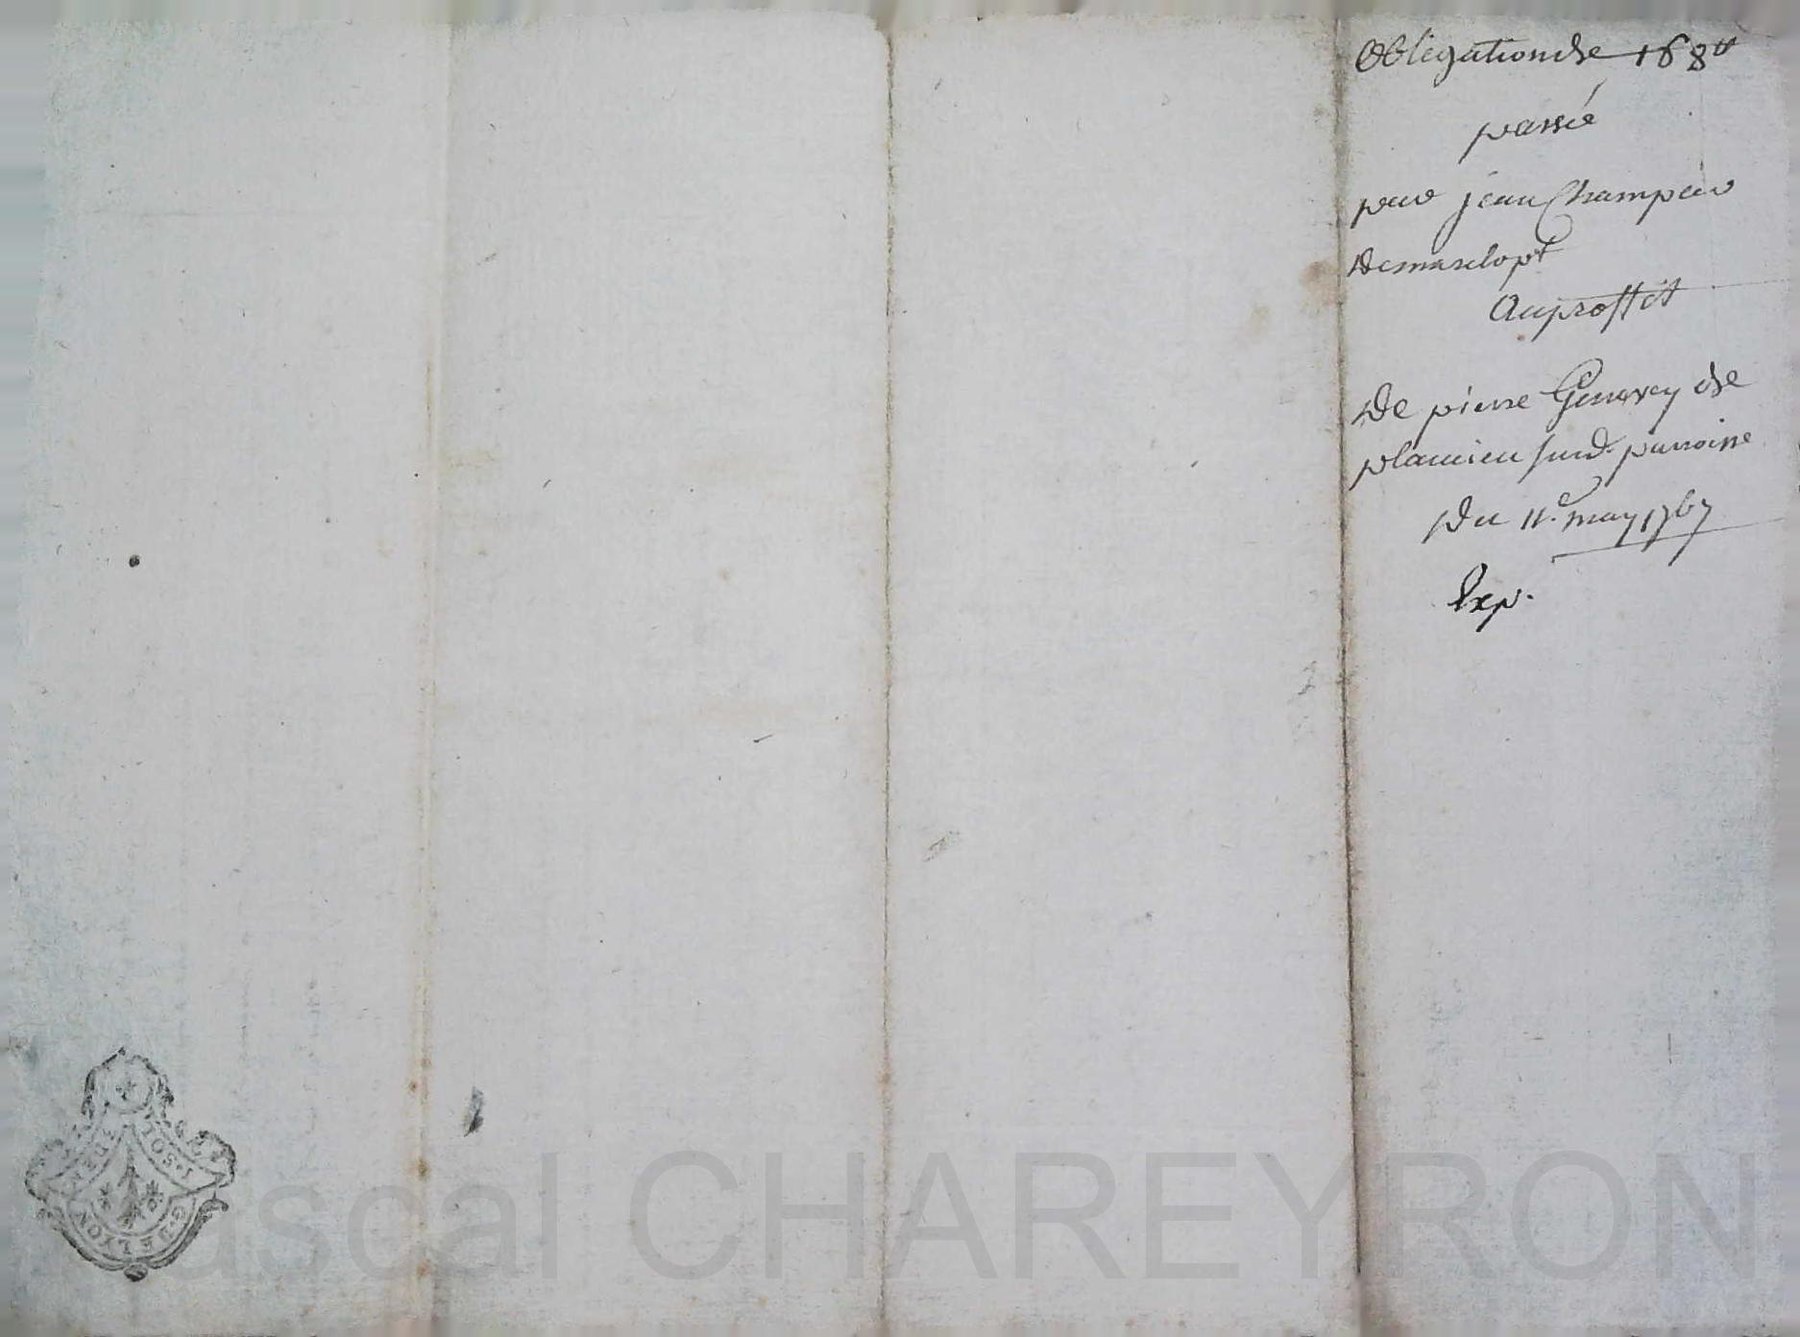 Obligation de 168 ₶
passé
par jean Champau
de maselopt
Au proffit
De pierre Genevey de
plamieu susd. parroisse
Du 11e. may 1767
Exp.
Pascal CHAREYRON
G. DE LYON